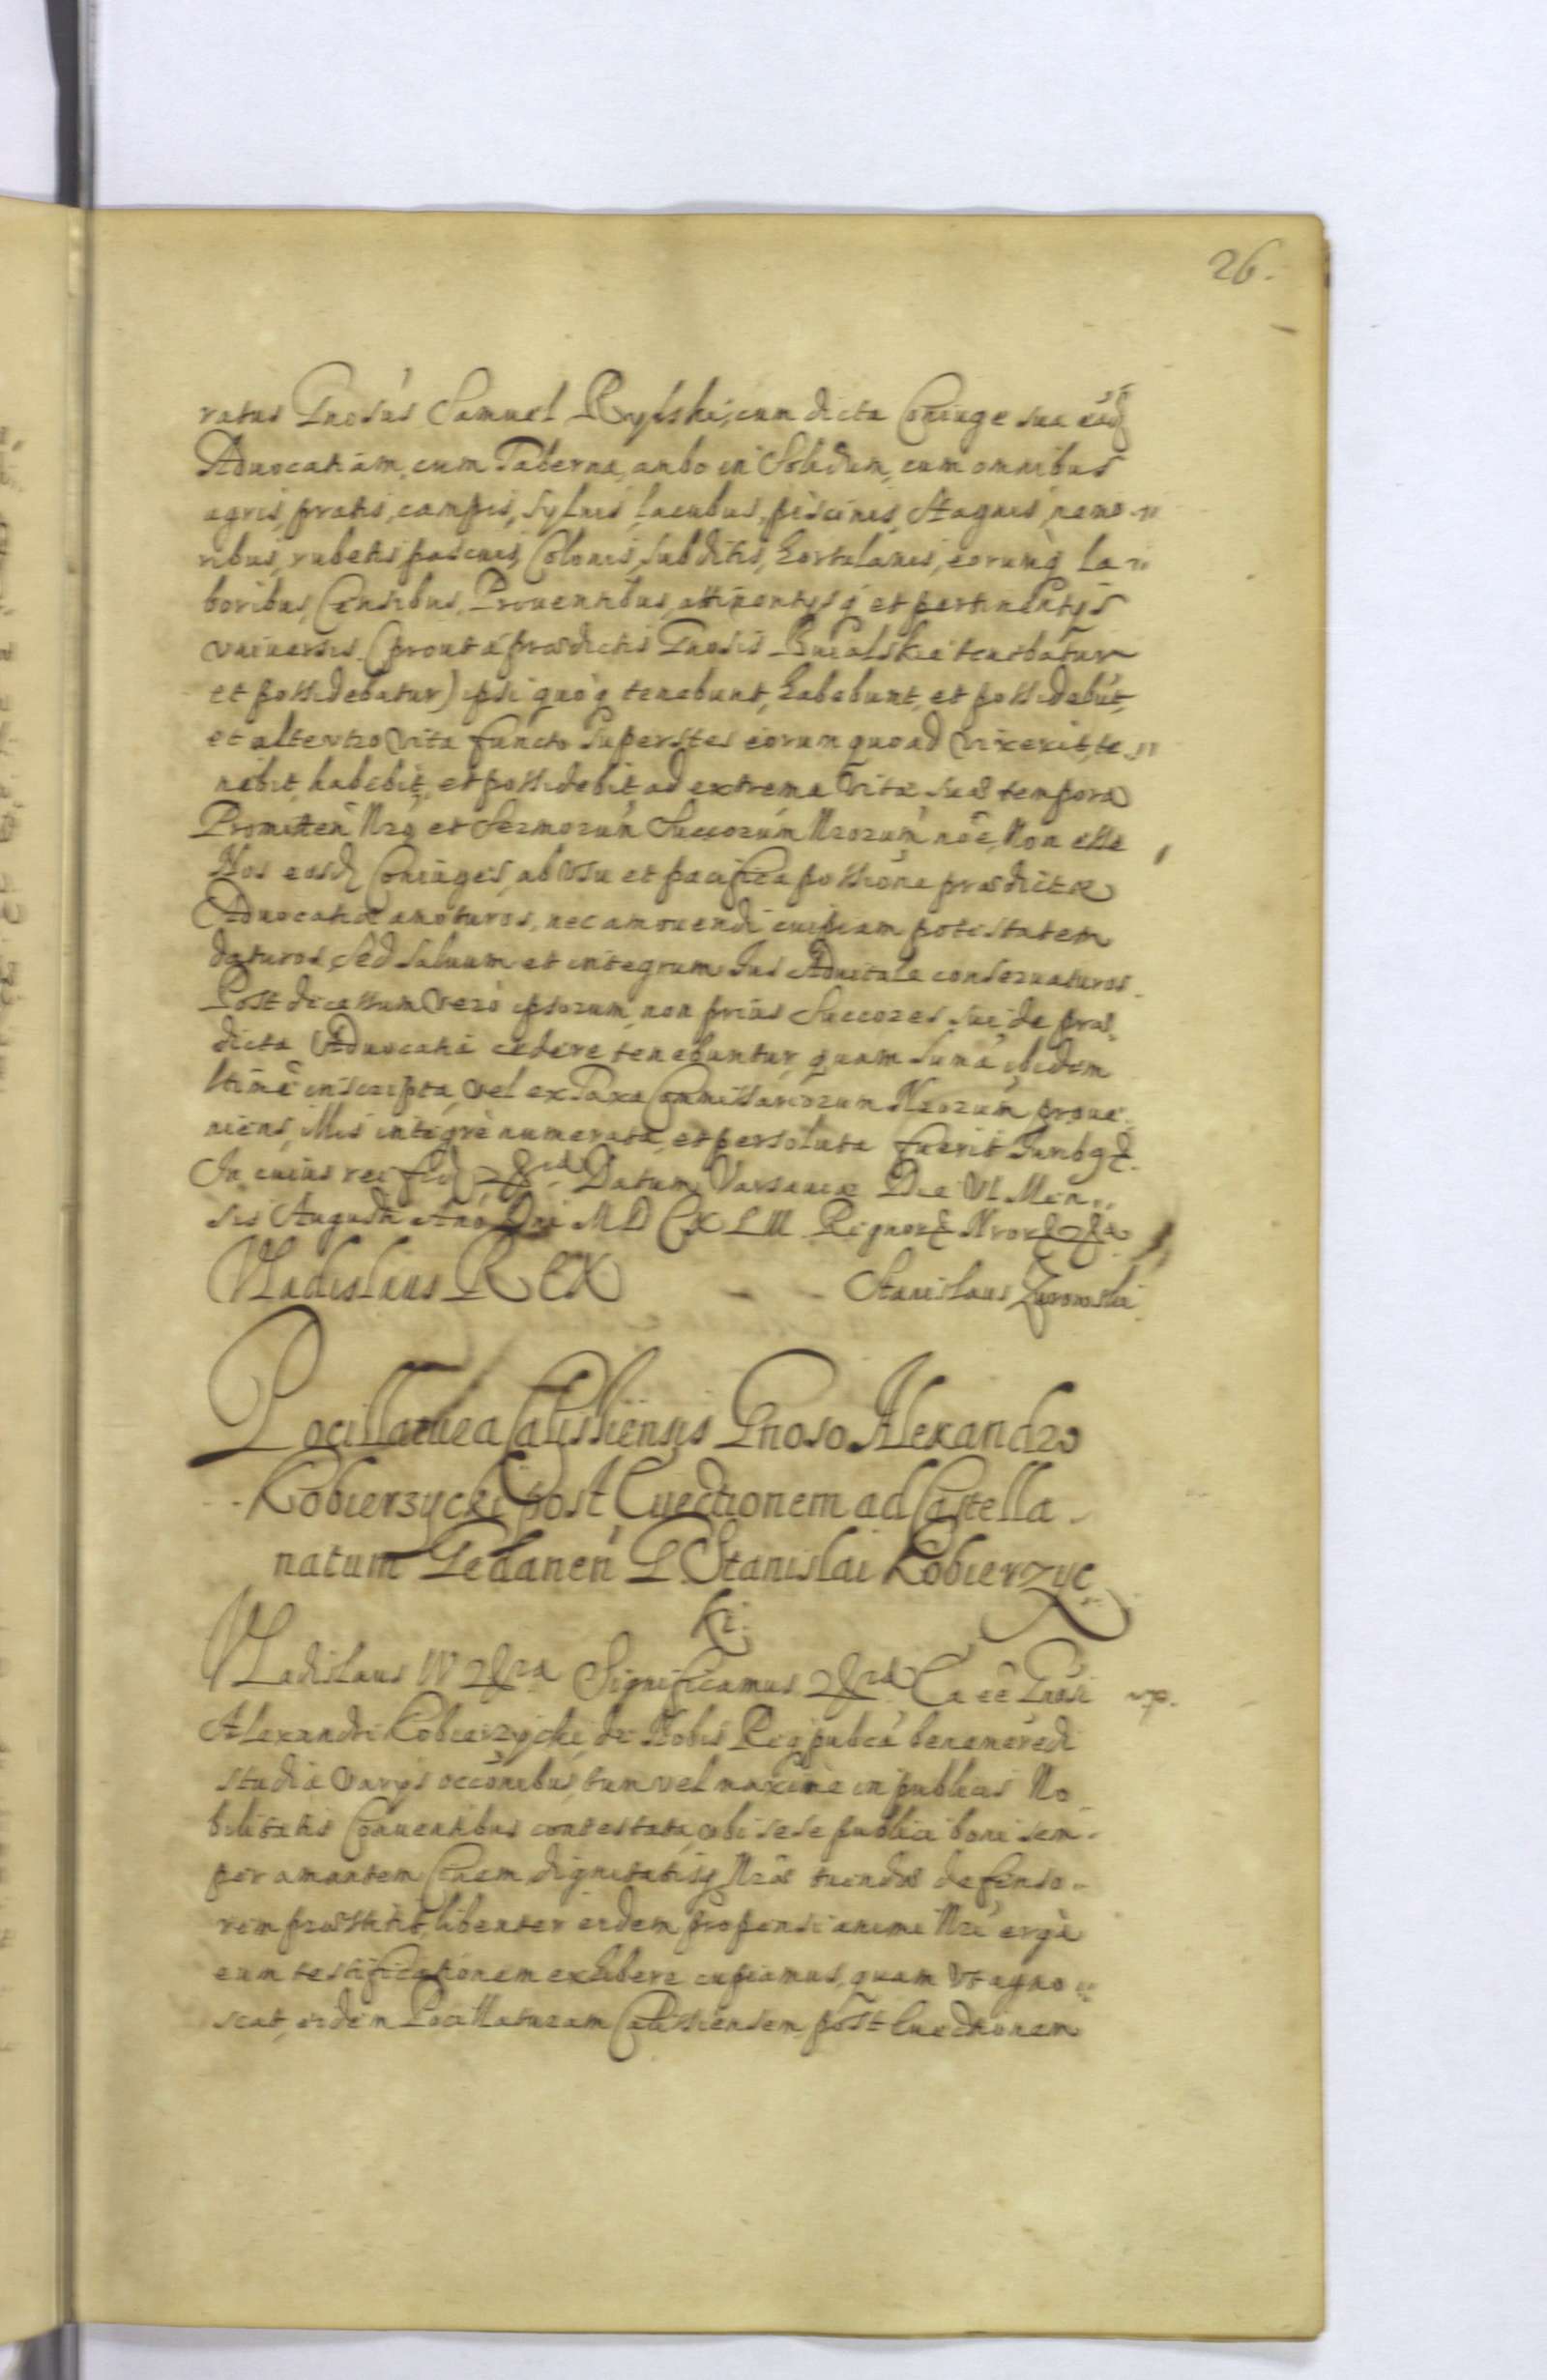 26.
ratus Gnosús Samuel Rylski, cum dicta Coniuge sua eãd
Aduocatiam, cum Taberna, ambo in Solidum, cum omnibus
agris, pratis, campis, sylvis, lacubus, piscinis, Stagnis, nemo-
ribus, rubetis, pascuis, Colonis, subditis, hortulanis, eorumq̀ la-
boribus, Censibus, Prouentibus, attinentÿsq́ et pertinentÿs
vniuersis (prout á prædictis Gnosis tenebatur
et possidebatur) ipsi quoq́ tenebunt, habebunt, et possidebút,
et alterutro vita functo Superstes eorum quoad vixerit, te-
nebit, habebit, et possidebit, ad extrema vitæ suæ tempora
Promitten̄ Nrõ et Sermorum̃ Succorum̃ Nrorum̃ nõe, Non esse
Nos eosd̃ Coniuges, ab vsu et pacifica possiõne prædictæ
Aduocatiæ amoturos, nec amouendi cuipiam potestatem
daturos, Sed saluum et integrum Ius Aduitale conseruaturos.
Post decessum verò ipsorum, non priùs Succores sui de præ-
dicta Aduocatia cedere tenebuntur, quam Suma ibidem
ltimẽ inscripta, vel ex Taxa Commissariorum Nrorum̃ proue-
niens, illis integrè numerata, et persoluta fuerit
In cuius rei fid̃ &cã Datum Varsauiæ Die VI Men-
sis Augusti Año Dni MDCXLIII Regnor̃ Nror̃ &ca
Vladislaus REX - - Stanislaus Zurowski
Pocillatura Calissiensis Gnoso Alexandro
Kobierzycki post Euectionem ad Castella-
natum Gedanen̄ G. Stanislai Kobierzyc
ki.
Vladislaus IV &ca Significamus &ca Ea eẽ Gnosi
Alexandri Kobierzycki de Nobis Reiqpubcá benemerẽdi
studia varÿs occõnibus, tum vel maximè in publicis No-
bilitatis Conuentibus contestata, vbi sese publici boni sem-
per amantem Ciuem, dignitatisq Nræ tuendæ defenso-
rem præstitit, libenter eidem propensi animi Nri ergà
eum testificationem exhibere cupiamus, quam vt agno-
scat, eidem Pocillaturam Calissiensem post Euectionem